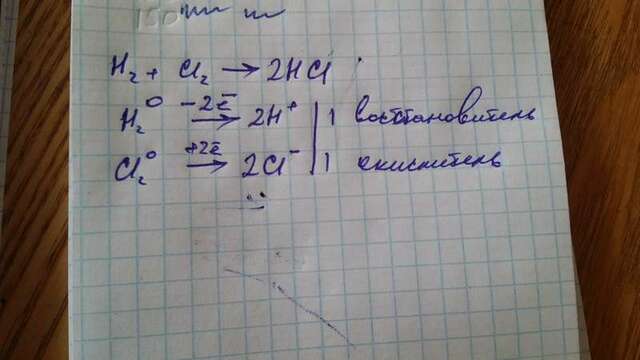 H₂ + Cl₂ → 2HCl
H₂⁰ −2ē → 2H⁺ | 1 восстановитель
Cl₂⁰ +2ē → 2Cl⁻ | 1 окислитель